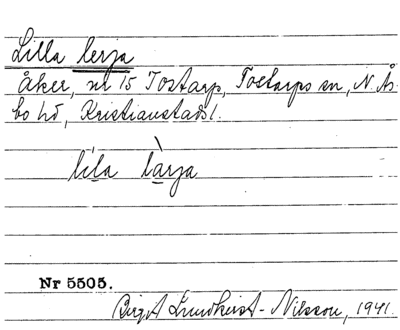 Lilla lerja
Åker, nr 15 Tostarp, Tostarps sn, N. Ås-
bo hd, Kristianstads l.
líla làrja
Nr 5505.
Birgit Lundkvist-Nilsson, 1941.